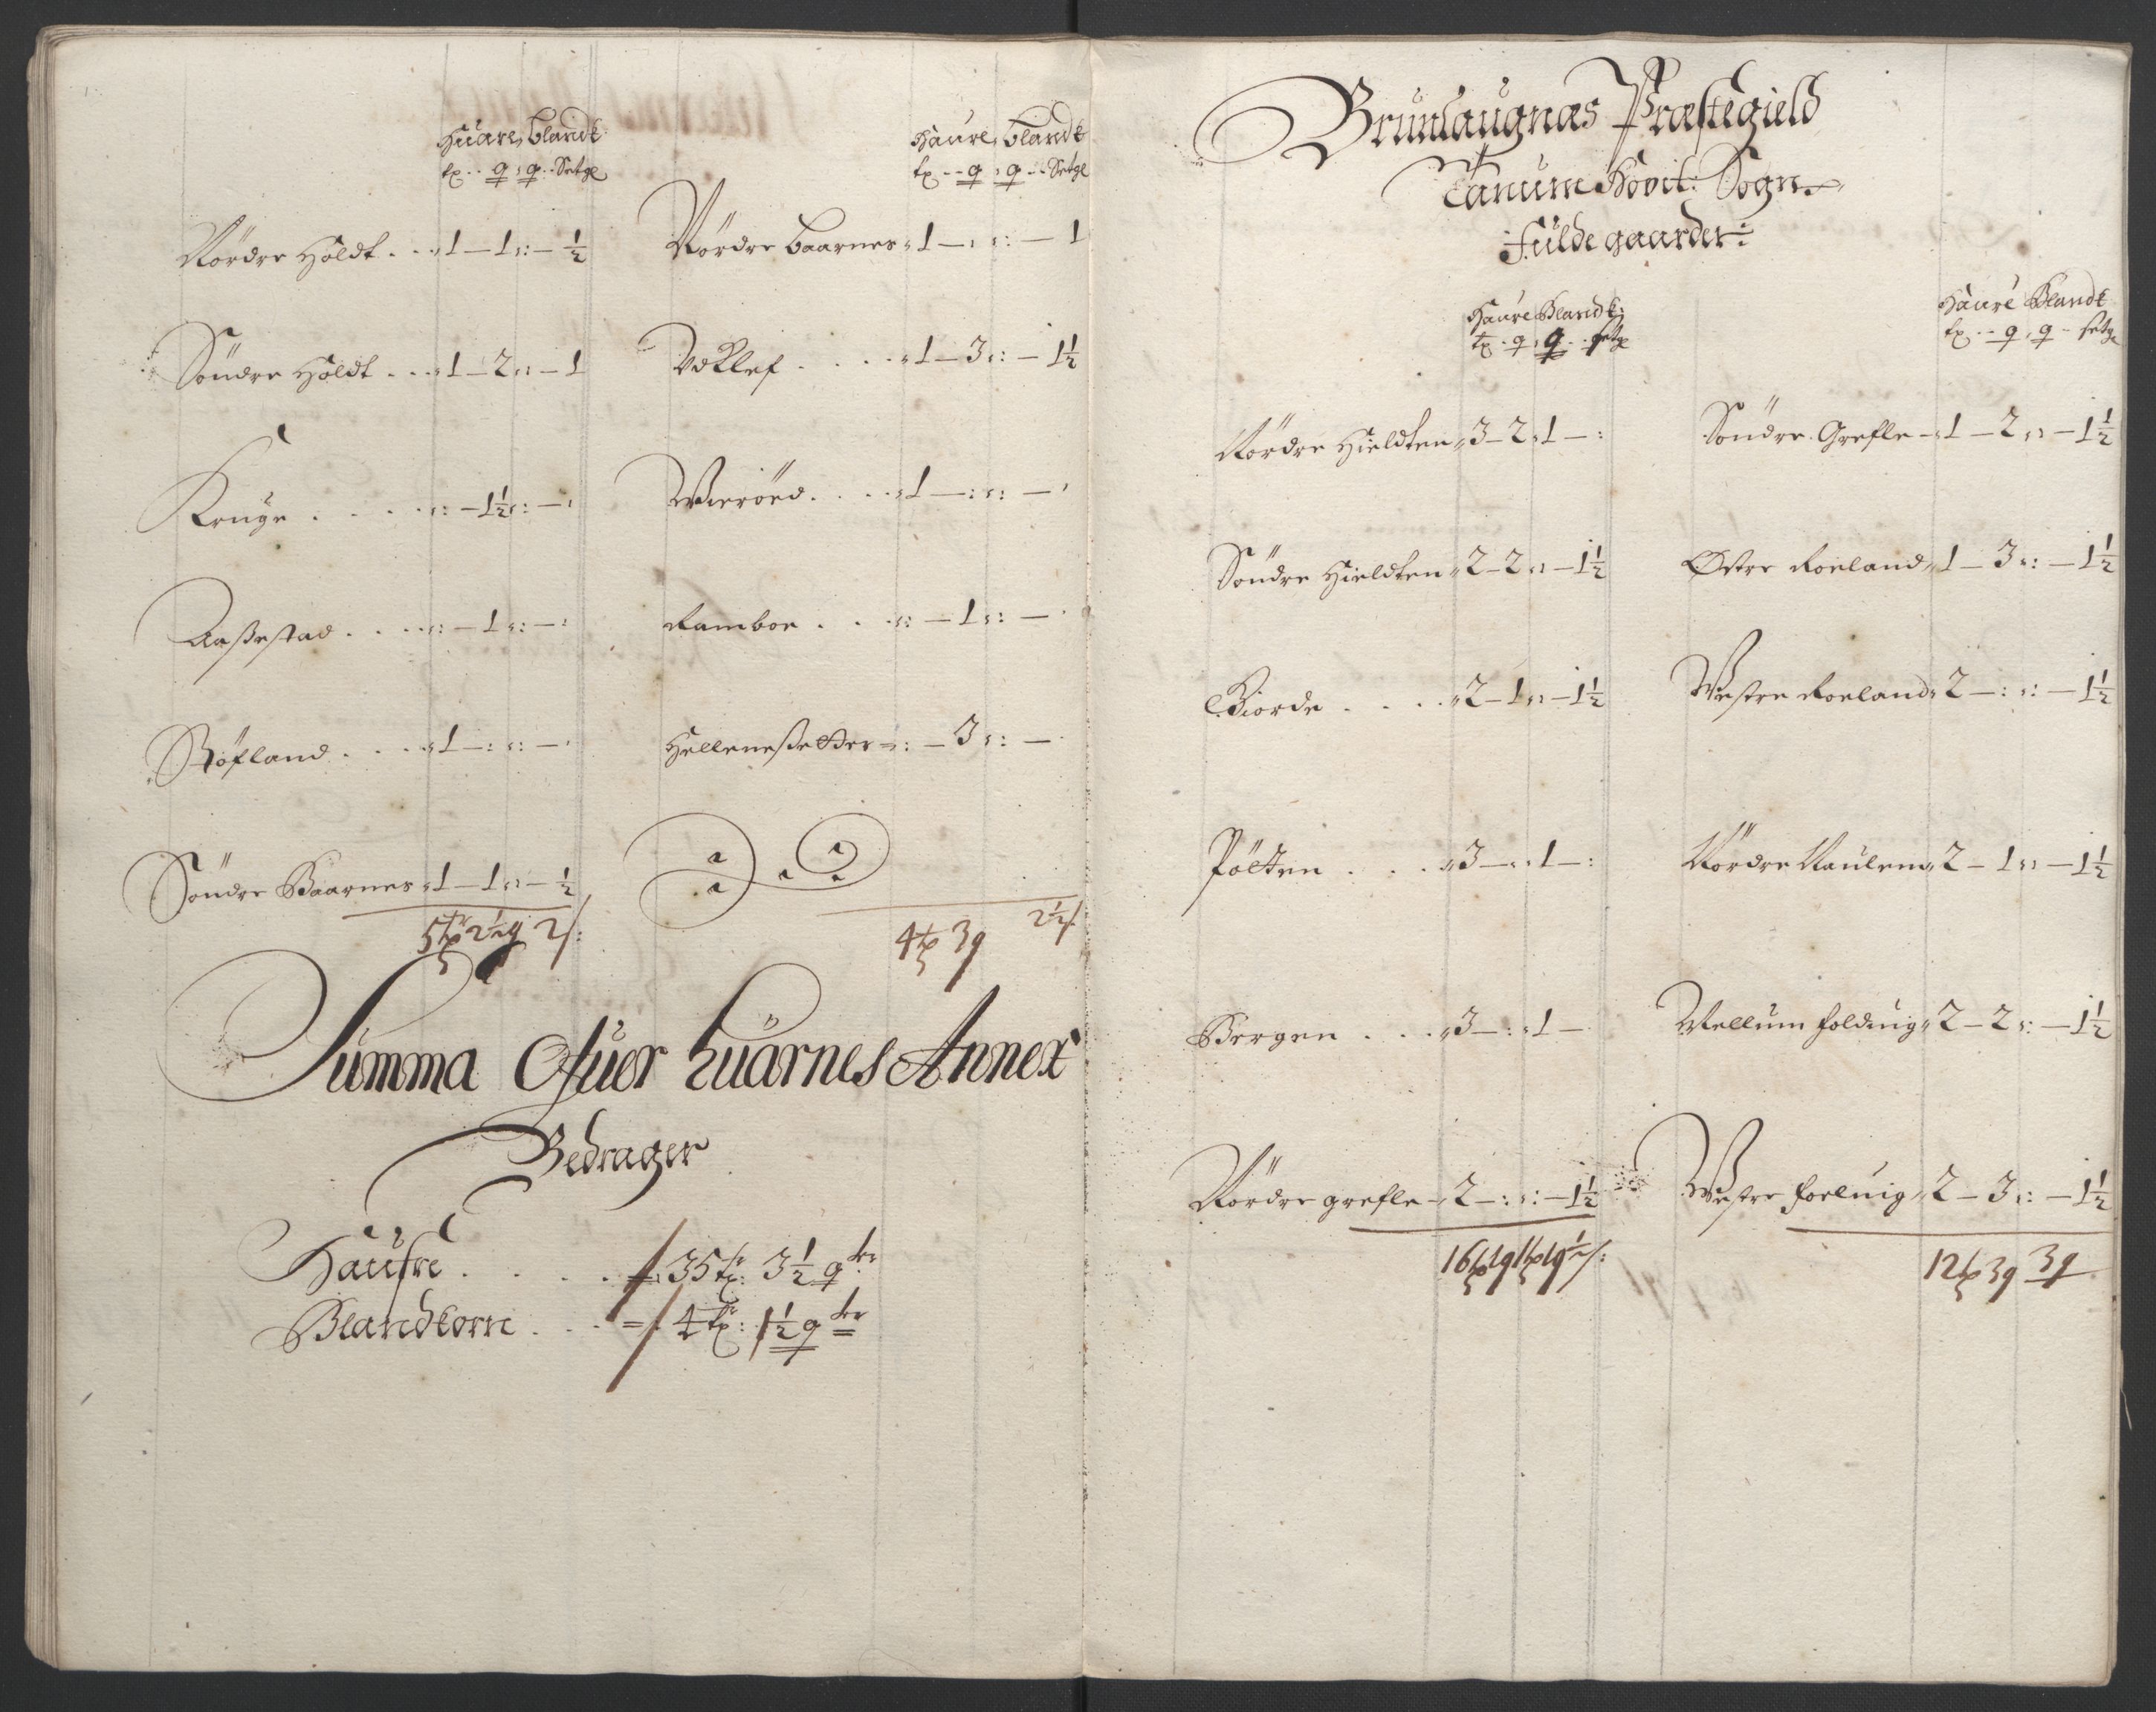 Huare, blandt:
tx. - q , q - Setge
Nördre Holdt . . . 1 — 1 ,: — ½
Söndre Holdt . . . 1 — 2 ,: — 1
Kruge . . . . ,: — 1½ ,: — ,
Aaßestad . . . ,: — 1 ,: — :
Röfland . . . 1 — : ,: — .
Söndre Baarnes . 1 — 1 ,: — ½
5tx 2½q 2s:
Haure, blandt
tx. - q , q - Setge
Nördre Baarnes . 1 — , ,: — 1
Vdklef . . . . 1 — 3 ,: — 1½
Wieröed . . . . 1 — : ,: — ,
Ramboe . . . ,: — 1 ,: — .
Helleneßetter - ,: — 3 ,: — .
4tx 3q 2½s
Summa Ofuer huarnes Annex
Bedrager
Haufre . . . . 35 tr: 3½ qtr
Blandkorn . . . 4 tr: 1½ qtr
Brunlaugnæs Præstegield
Tanum Hovit: Sogn
Fulde gaarder:
Haure Blandt:
tx - q , q - setge
Nördre Hieldten . 3 — 2 , 1 — :
Söndre Hieldten . 2 — 2 ,: — 1½
Kiorde . . . . 2 — 1 ,: — 1½
Pöltten . . . 3 — , , 1 — :
Bergen . . . 3 — : , 1 — .
Nördre grefle - 2 — : ,: — 1½
16tx 1q 1tx 1q ½s:
Haure Blandt
tx - q , q - setge
Söndre Grefle - 1 — 2 ,, — 1½
Östre Roeland . 1 — 3 ,: — 1½
Westre Roeland . 2 — : ,: — 1½
Nördre Naulem . 2 — 1 ,: — 1½
Vellum foldnig . 2 — 2 ,: — 1½
Westre foelnig . 2 — 3 ,: — 1½
12tx 3q 3q